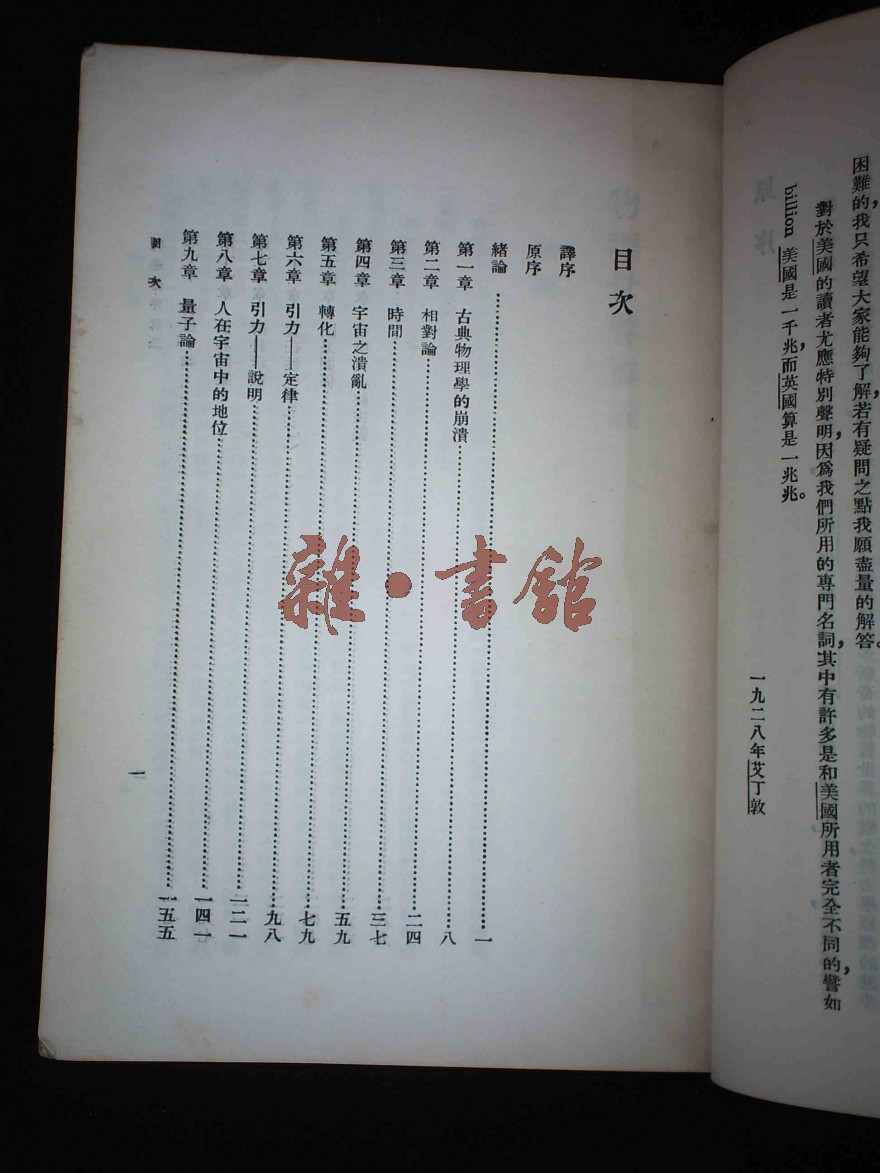 困難的我只希望大家能夠了解,若有疑問之點我願盡量的解答。
對於美國的讀者尤應特別聲明,因爲我們所用的專門名詞,其中有許多是和美國所用者完全不同的,譬如
billion 美國是一千兆,而英國算是一兆兆。
一九二八年艾丁敦
目次
譯序
原序
緒論……一
第一章 古典物理學的崩潰……八
第二章 相對論……二四
第三章 時間……三七
第四章 宇宙之潰亂……五九
第五章 轉化……七九
第六章 引力——定律……九八
第七章 引力——說明……一二一
第八章 人在宇宙中的地位……一四一
第九章 量子論……一五五
目次
一
雜·書館